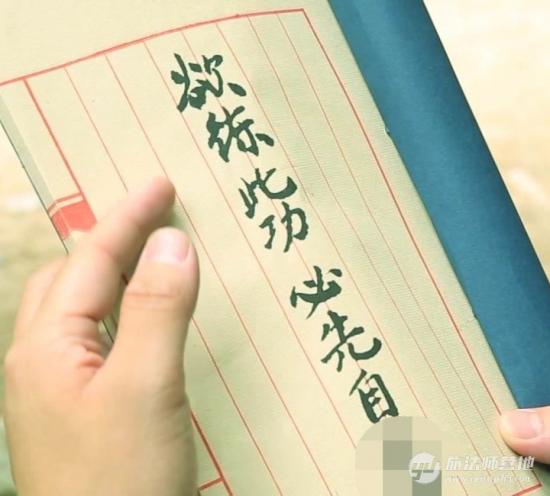 欲练此功 必先自
旅法师营地